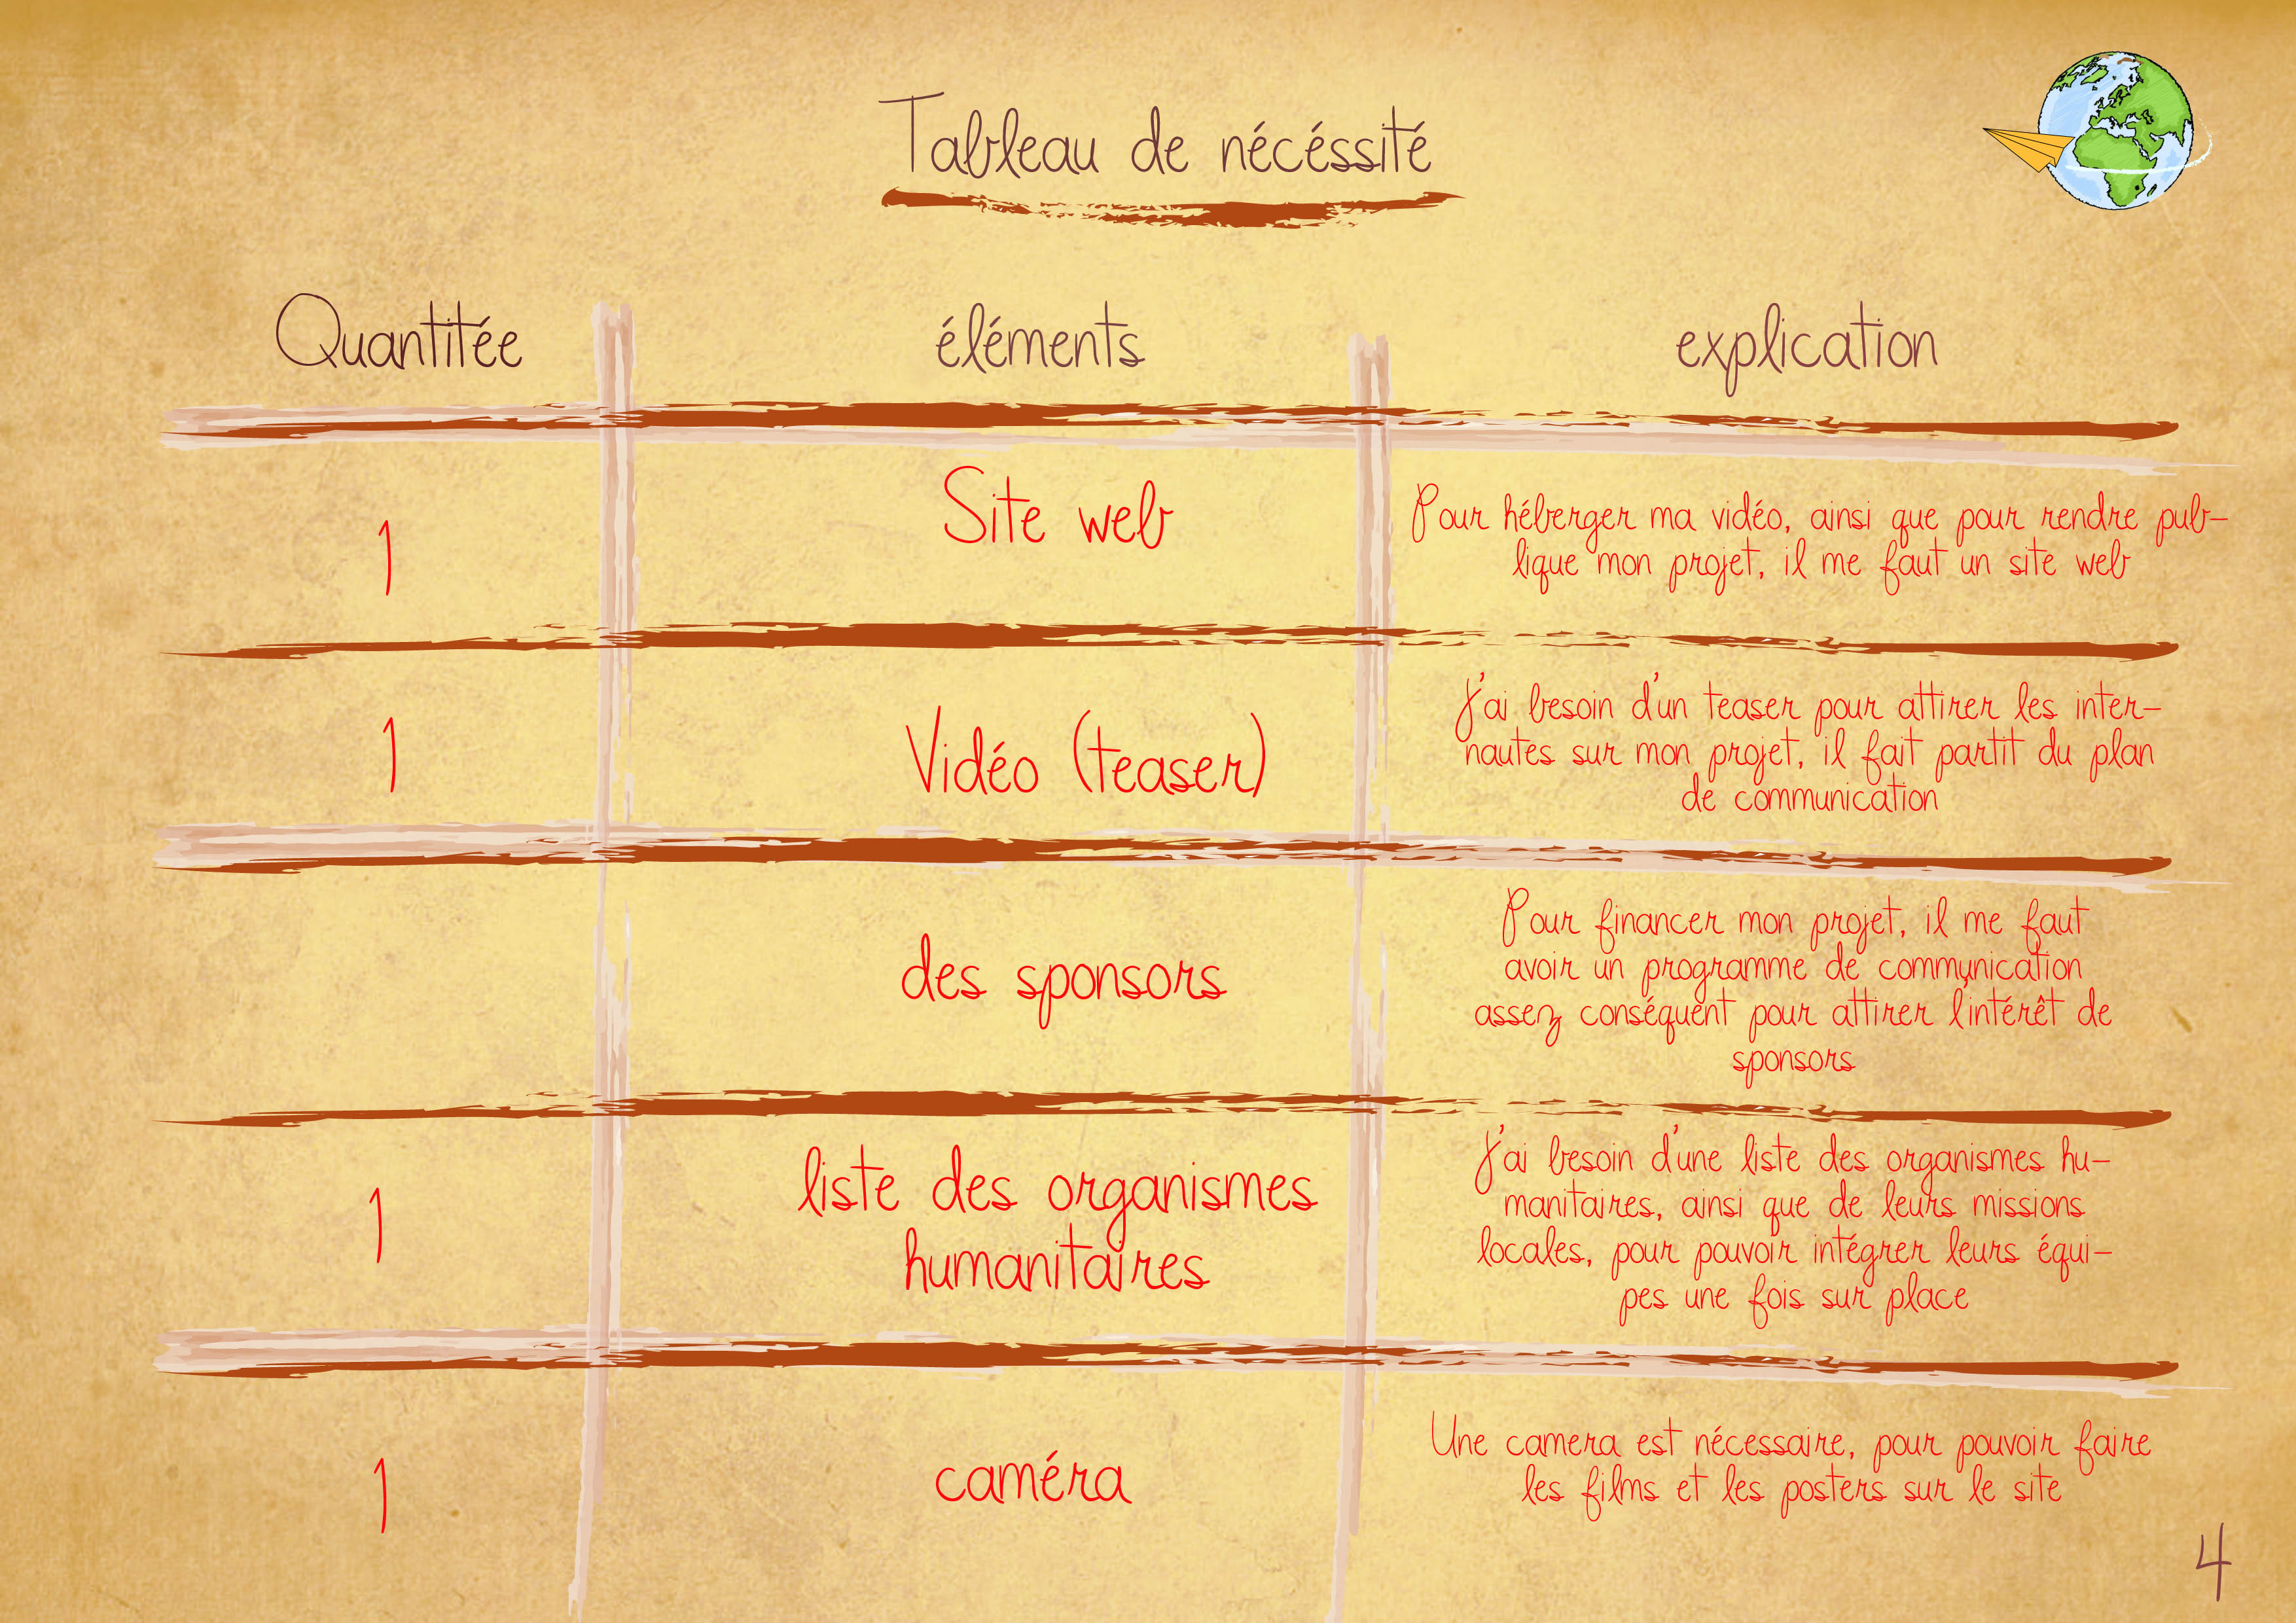 Tableau de nécéssité
Quantitée éléments explication
1 Site web
Pour héberger ma vidéo, ainsi que pour rendre pub-
lique mon projet, il me faut un site web
1 Vidéo (teaser)
J'ai besoin d'un teaser pour attirer les inter-
nautes sur mon projet, il fait partit du plan
de communication
des sponsors
Pour financer mon projet, il me faut
avoir un programme de communication
assez conséquent pour attirer l'intérêt de
sponsors
1 liste des organismes
humanitaires
J'ai besoin d'une liste des organismes hu-
manitaires, ainsi que de leurs missions
locales, pour pouvoir intégrer leurs équi-
pes une fois sur place
1 caméra
Une camera est nécessaire, pour pouvoir faire
les films et les posters sur le site
4